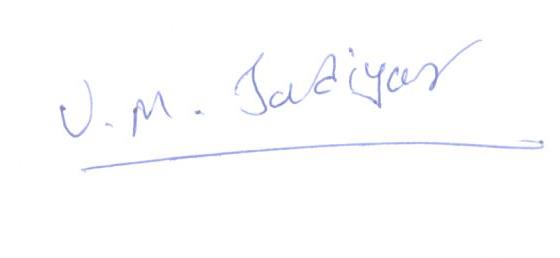 V. M. Jatiyar